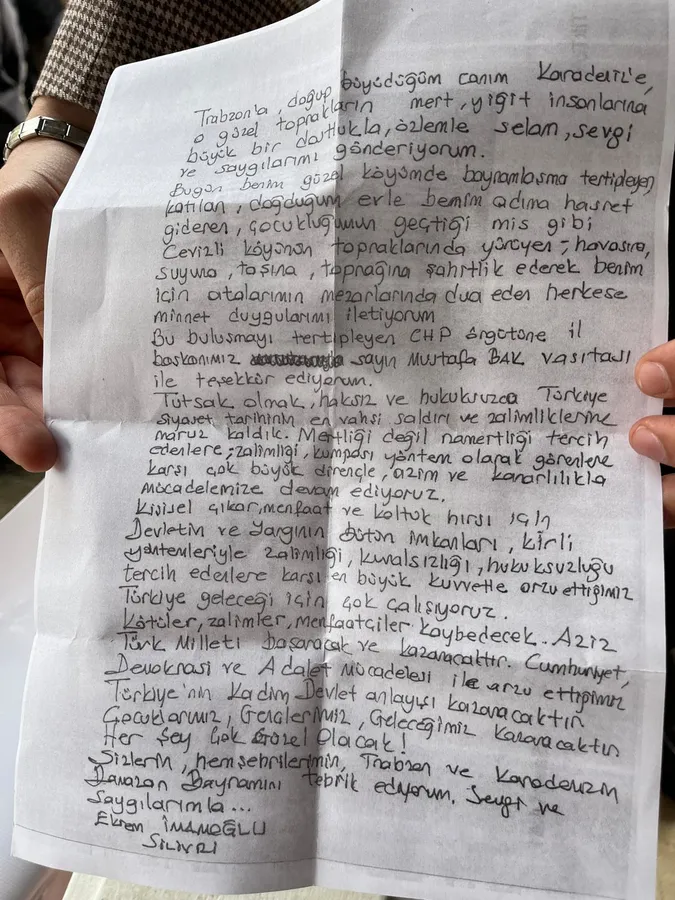 Trabzon'a, doğup büyüdüğüm canım Karadeniz'e,
o güzel toprakların mert, yiğit insanlarına
büyük bir dostlukla, özlemle selam, sevgi
ve saygılarımı gönderiyorum.
Bugün benim güzel köyümde bayramlaşma tertipleyen,
katılan, doğduğum evle benim adıma hasret
gideren, çocukluğumun geçtiği mis gibi
Cevizli köyünün topraklarında yürüyen, havasına,
suyuna, taşına, toprağına şahitlik ederek benim
için atalarımın mezarlarında dua eden herkese
minnet duygularımı iletiyorum
Bu buluşmayı tertipleyen CHP örgütüne il
başkanımız sayın Mustafa BAK vasıtası
ile teşekkür ediyorum.
Tutsak olmak, haksız ve hukuksuzca Türkiye
siyaset tarihinin en vahşi saldırı ve zalimliklerine
maruz kaldık. Mertliği değil namertliği tercih
edenlere, zalimliği, kumpası yöntem olarak görenlere
karşı çok büyük dirençle, azim ve kararlılıkla
mücadelemize devam ediyoruz.
Kişisel çıkar, menfaat ve koltuk hırsı için
Devletin ve Yargının bütün imkanları, kirli
yöntemleriyle zalimliği, kuralsızlığı, hukuksuzluğu
tercih edenlere karşı en büyük kuvvetle arzu ettiğimiz
Türkiye geleceği için çok çalışıyoruz.
Kötüler, zalimler, menfaatçiler kaybedecek. Aziz
Türk Milleti başaracak ve kazanacaktır. Cumhuriyet,
Demokrasi ve Adalet mücadelesi ile arzu ettiğimiz
Türkiye'nin Kadim Devlet anlayışı kazanacaktır
Çocuklarımız, Gençlerimiz, Geleceğimiz kazanacaktır
Her Şey Çok Güzel Olacak!
Sizlerin, hemşehrilerimin, Trabzon ve Karadenizin
Ramazan Bayramını tebrik ediyorum. Sevgi ve
Saygılarımla...
Ekrem İMAMOĞLU
SİLİVRİ